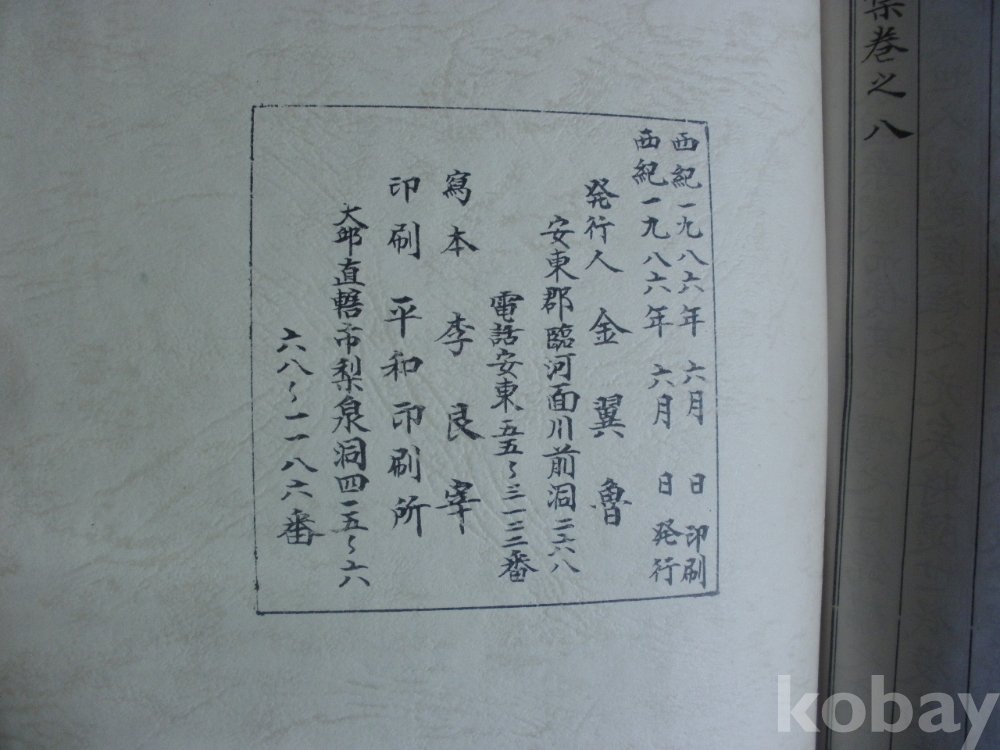 集卷之八
西紀一九八六年 六月 日 印刷
西紀一九八六年 六月 日 発行
発行人 金翼魯
安東郡臨河面川前洞二六八
電話安東、五五~三一三二番
寫本 李良宰
印刷 平和印刷所
大邱直轄市梨泉洞四一五~十六
六八~一一八六番
kobay